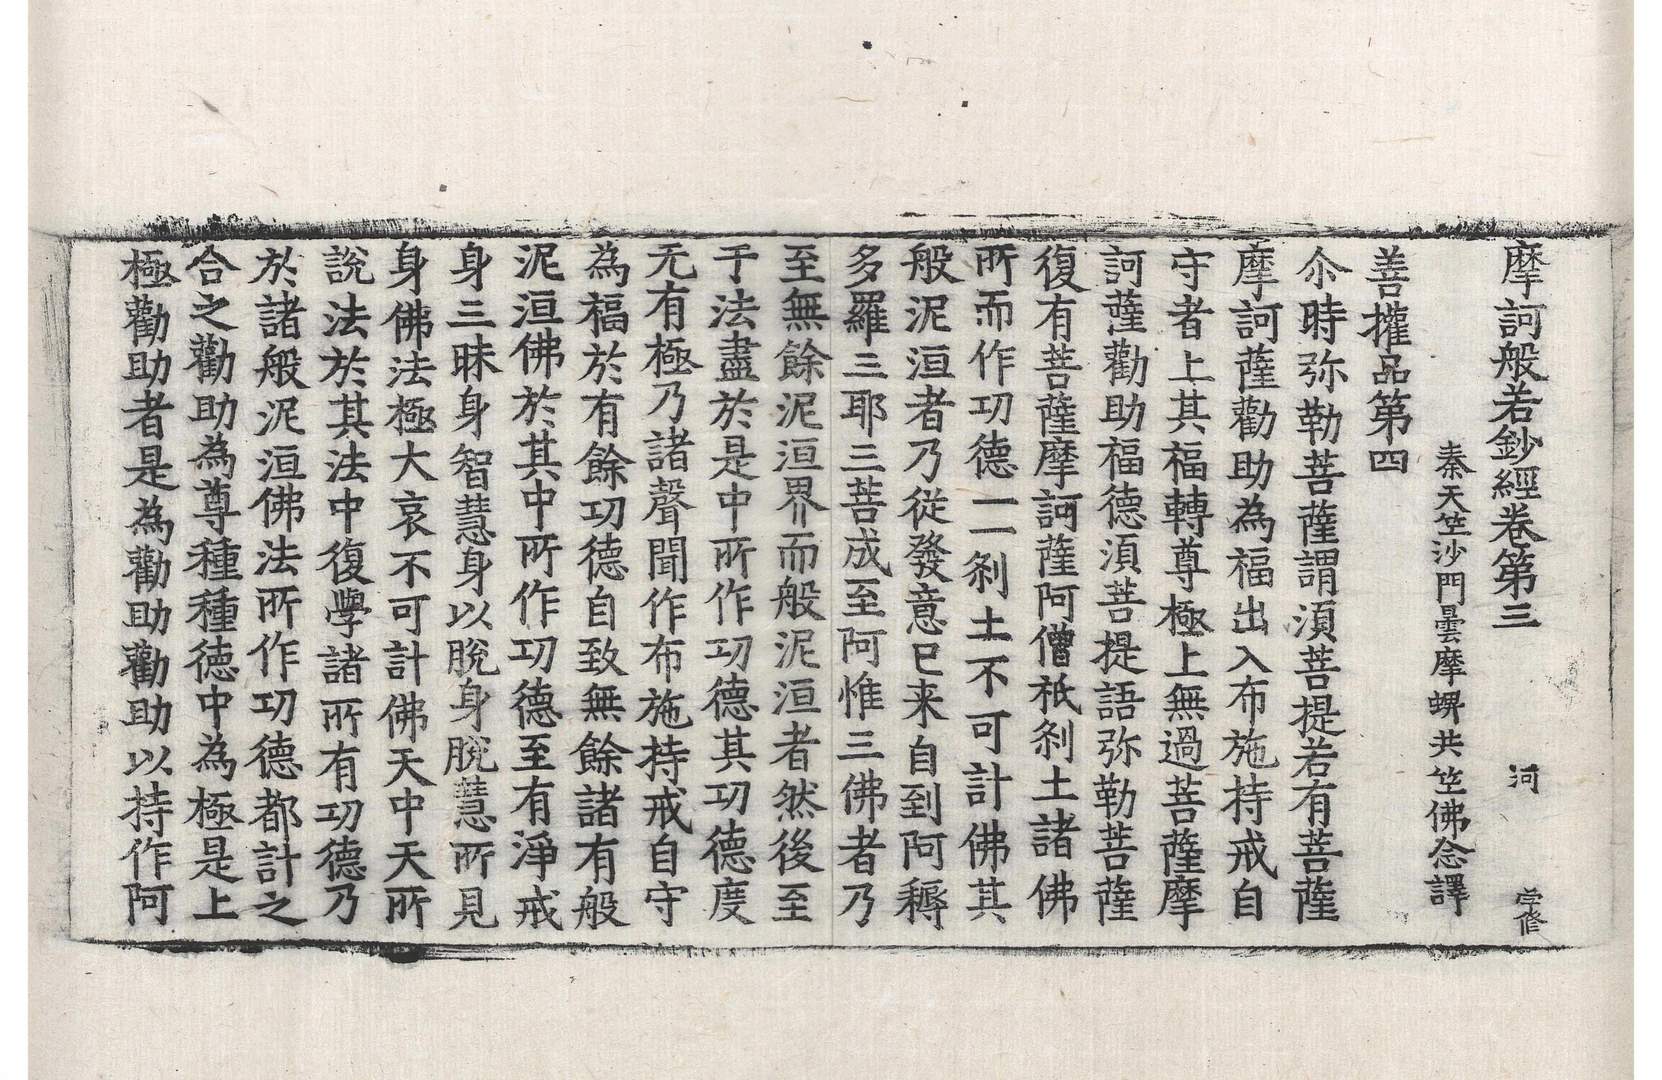 摩訶般若鈔經卷第三 河 学修
秦天竺沙門曇摩蜱共竺佛念譯
善權品第四
尒時弥勒菩薩謂湏菩提若有菩薩
摩訶薩勸助為福出入布施持戒自
守者上其福轉尊極上無過菩薩摩
訶薩勸助福德湏菩提語弥勒菩薩
復有菩薩摩訶薩阿僧衹刹土諸佛
所而作功德一一刹土不可計佛其
般泥洹者乃從發意已来自到阿耨
多羅三耶三菩成至阿惟三佛者乃
至無餘泥洹界而般泥洹者然後至
于法盡於是中所作功德其功德度
无有極乃諸聲聞作布施持戒自守
為福於有餘功德自致無餘諸有般
泥洹佛於其中所作功德至有淨戒
身三昧身智慧身以脫身脫慧所見
身佛法極大哀不可計佛天中天所
說法於其法中復學諸所有功德乃
於諸般泥洹佛法所作功德都計之
合之勸助為尊種種德中為極是上
極勸助者是為勸助勸助以持作阿